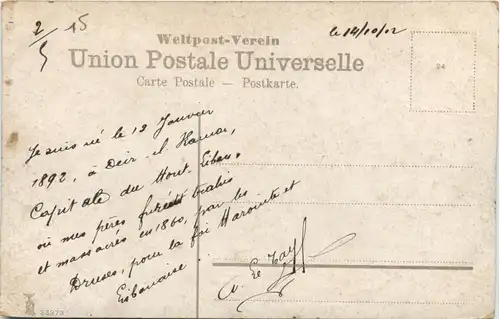 2/5 15
le 14/10/12
Weltpost-Verein
Union Postale Universelle
Carte Postale — Postkarte.
24
Je suis né le 12 Janvier
1892, à Deir-el-Kamar,
Capitale du Mont-Liban,
où mes pères furent trahis
et massacrés en 1860, par les
Druses, pour la foi Maronite et
Libanaise.
33373